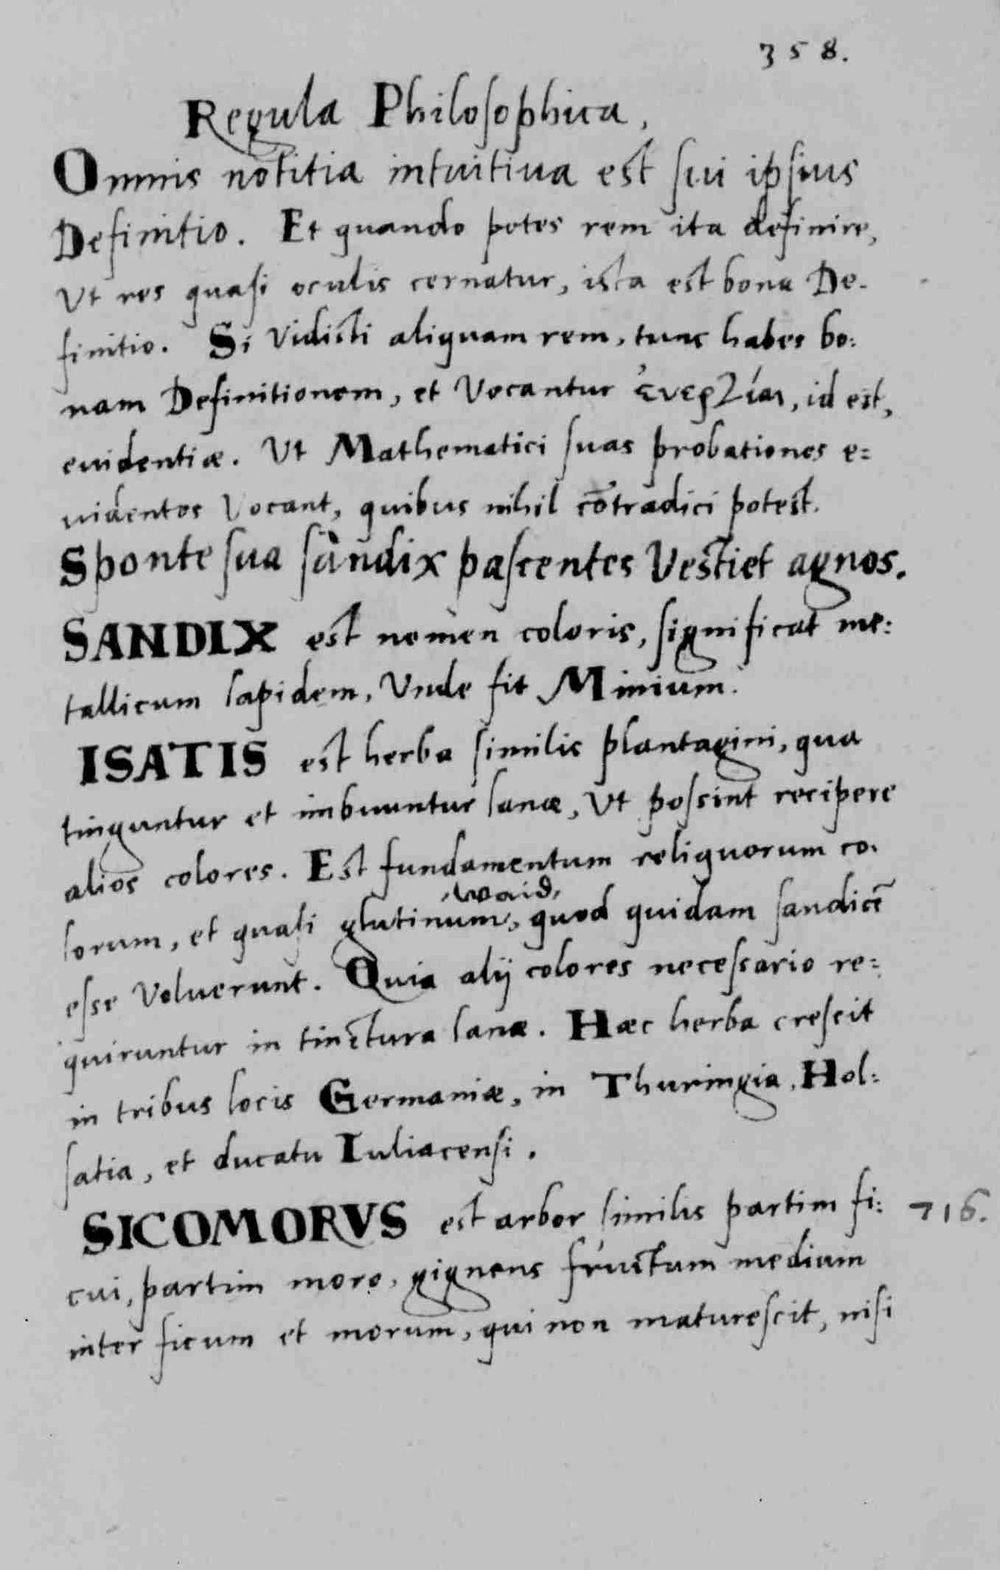 358.
Regula Philosophica.
Omnis notitia intuitiua est sui ipsius
Definitio. Et quando potes rem ita definire,
Vt res quasi oculis cernatur, ista est bona De-
finitio. Si Vidisti aliquam rem, tunc habes bo:
nam Definitionem, et Vocantur ἐνεργίαι, id est,
euidentiæ. Vt Mathematici suas probationes e=
uidentes Vocant, quibus nihil cōtradici potest.
Sponte sua sandix pascentes Vestiet agnos.
SANDIX est nomen coloris, significat me:
tallicum lapidem, Vnde fit Minium.
ISATIS est herba similis plantagini, qua
tinguntur et imbuuntur lanæ, Vt possint recipere
alios colores. Est fundamentum reliquorum co.
waid,
lorum, et quasi glutinum, quod quidam sandicē
esse Voluerunt. Quia alij colores necessario re=
quiruntur in tinctura lanæ. Hæc herba crescit
in tribus locis Germaniæ, in Thuringia, Hol:
satia, et ducatu Iuliacensi.
SICOMORVS est arbor similis partim fi: 716.
cui, partim moro, gignens fructum medium
inter ficum et morum, qui non maturescit, nisi